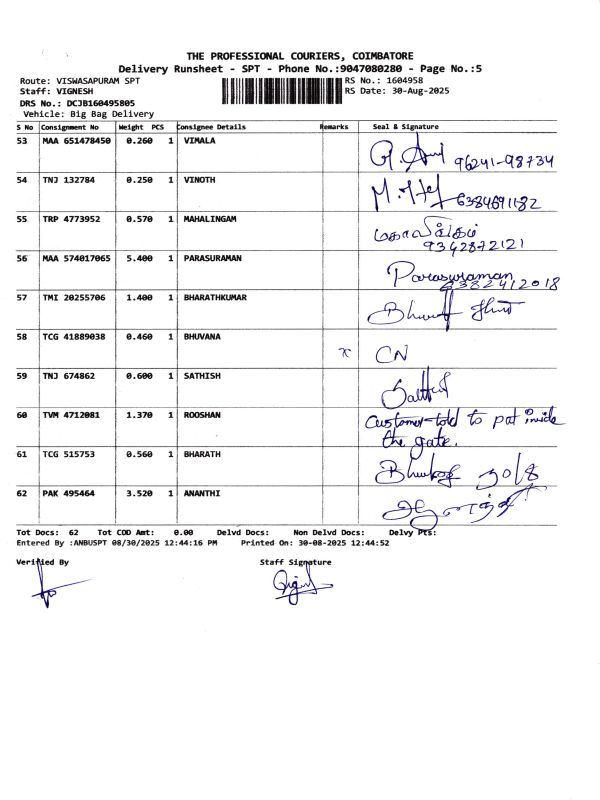 THE PROFESSIONAL COURIERS, COIMBATORE
Delivery Runsheet - SPT - Phone No.:9047080280 - Page No.:5
Route: VISWASAPURAM SPT RS No.: 1604958
Staff: VIGNESH RS Date: 30-Aug-2025
DRS No.: DCJB160495805
Vehicle: Big Bag Delivery
S No Consignment No Weight PCS Consignee Details Remarks Seal & Signature
53 MAA 651478450 0.260 1 VIMALA 96241-98734
54 TNJ 132784 0.250 1 VINOTH 6384691182
55 TRP 4773952 0.570 1 MAHALINGAM மகாலிங்கம்
9342872121
56 MAA 574017065 5.400 1 PARASURAMAN Parasuraman
9382412018
57 TMI 20255706 1.400 1 BHARATHKUMAR
58 TCG 41889038 0.460 1 BHUVANA x CN
59 TNJ 674862 0.600 1 SATHISH
60 TVM 4712081 1.370 1 ROOSHAN Customer told to put inside
the gate.
61 TCG 515753 0.560 1 BHARATH 30/8
62 PAK 495464 3.520 1 ANANTHI
Tot Docs: 62 Tot COD Amt: 0.00 Delvd Docs: Non Delvd Docs: Delvy Pts:
Entered By :ANBUSPT 08/30/2025 12:44:16 PM Printed On: 30-08-2025 12:44:52
Verified By Staff Signature